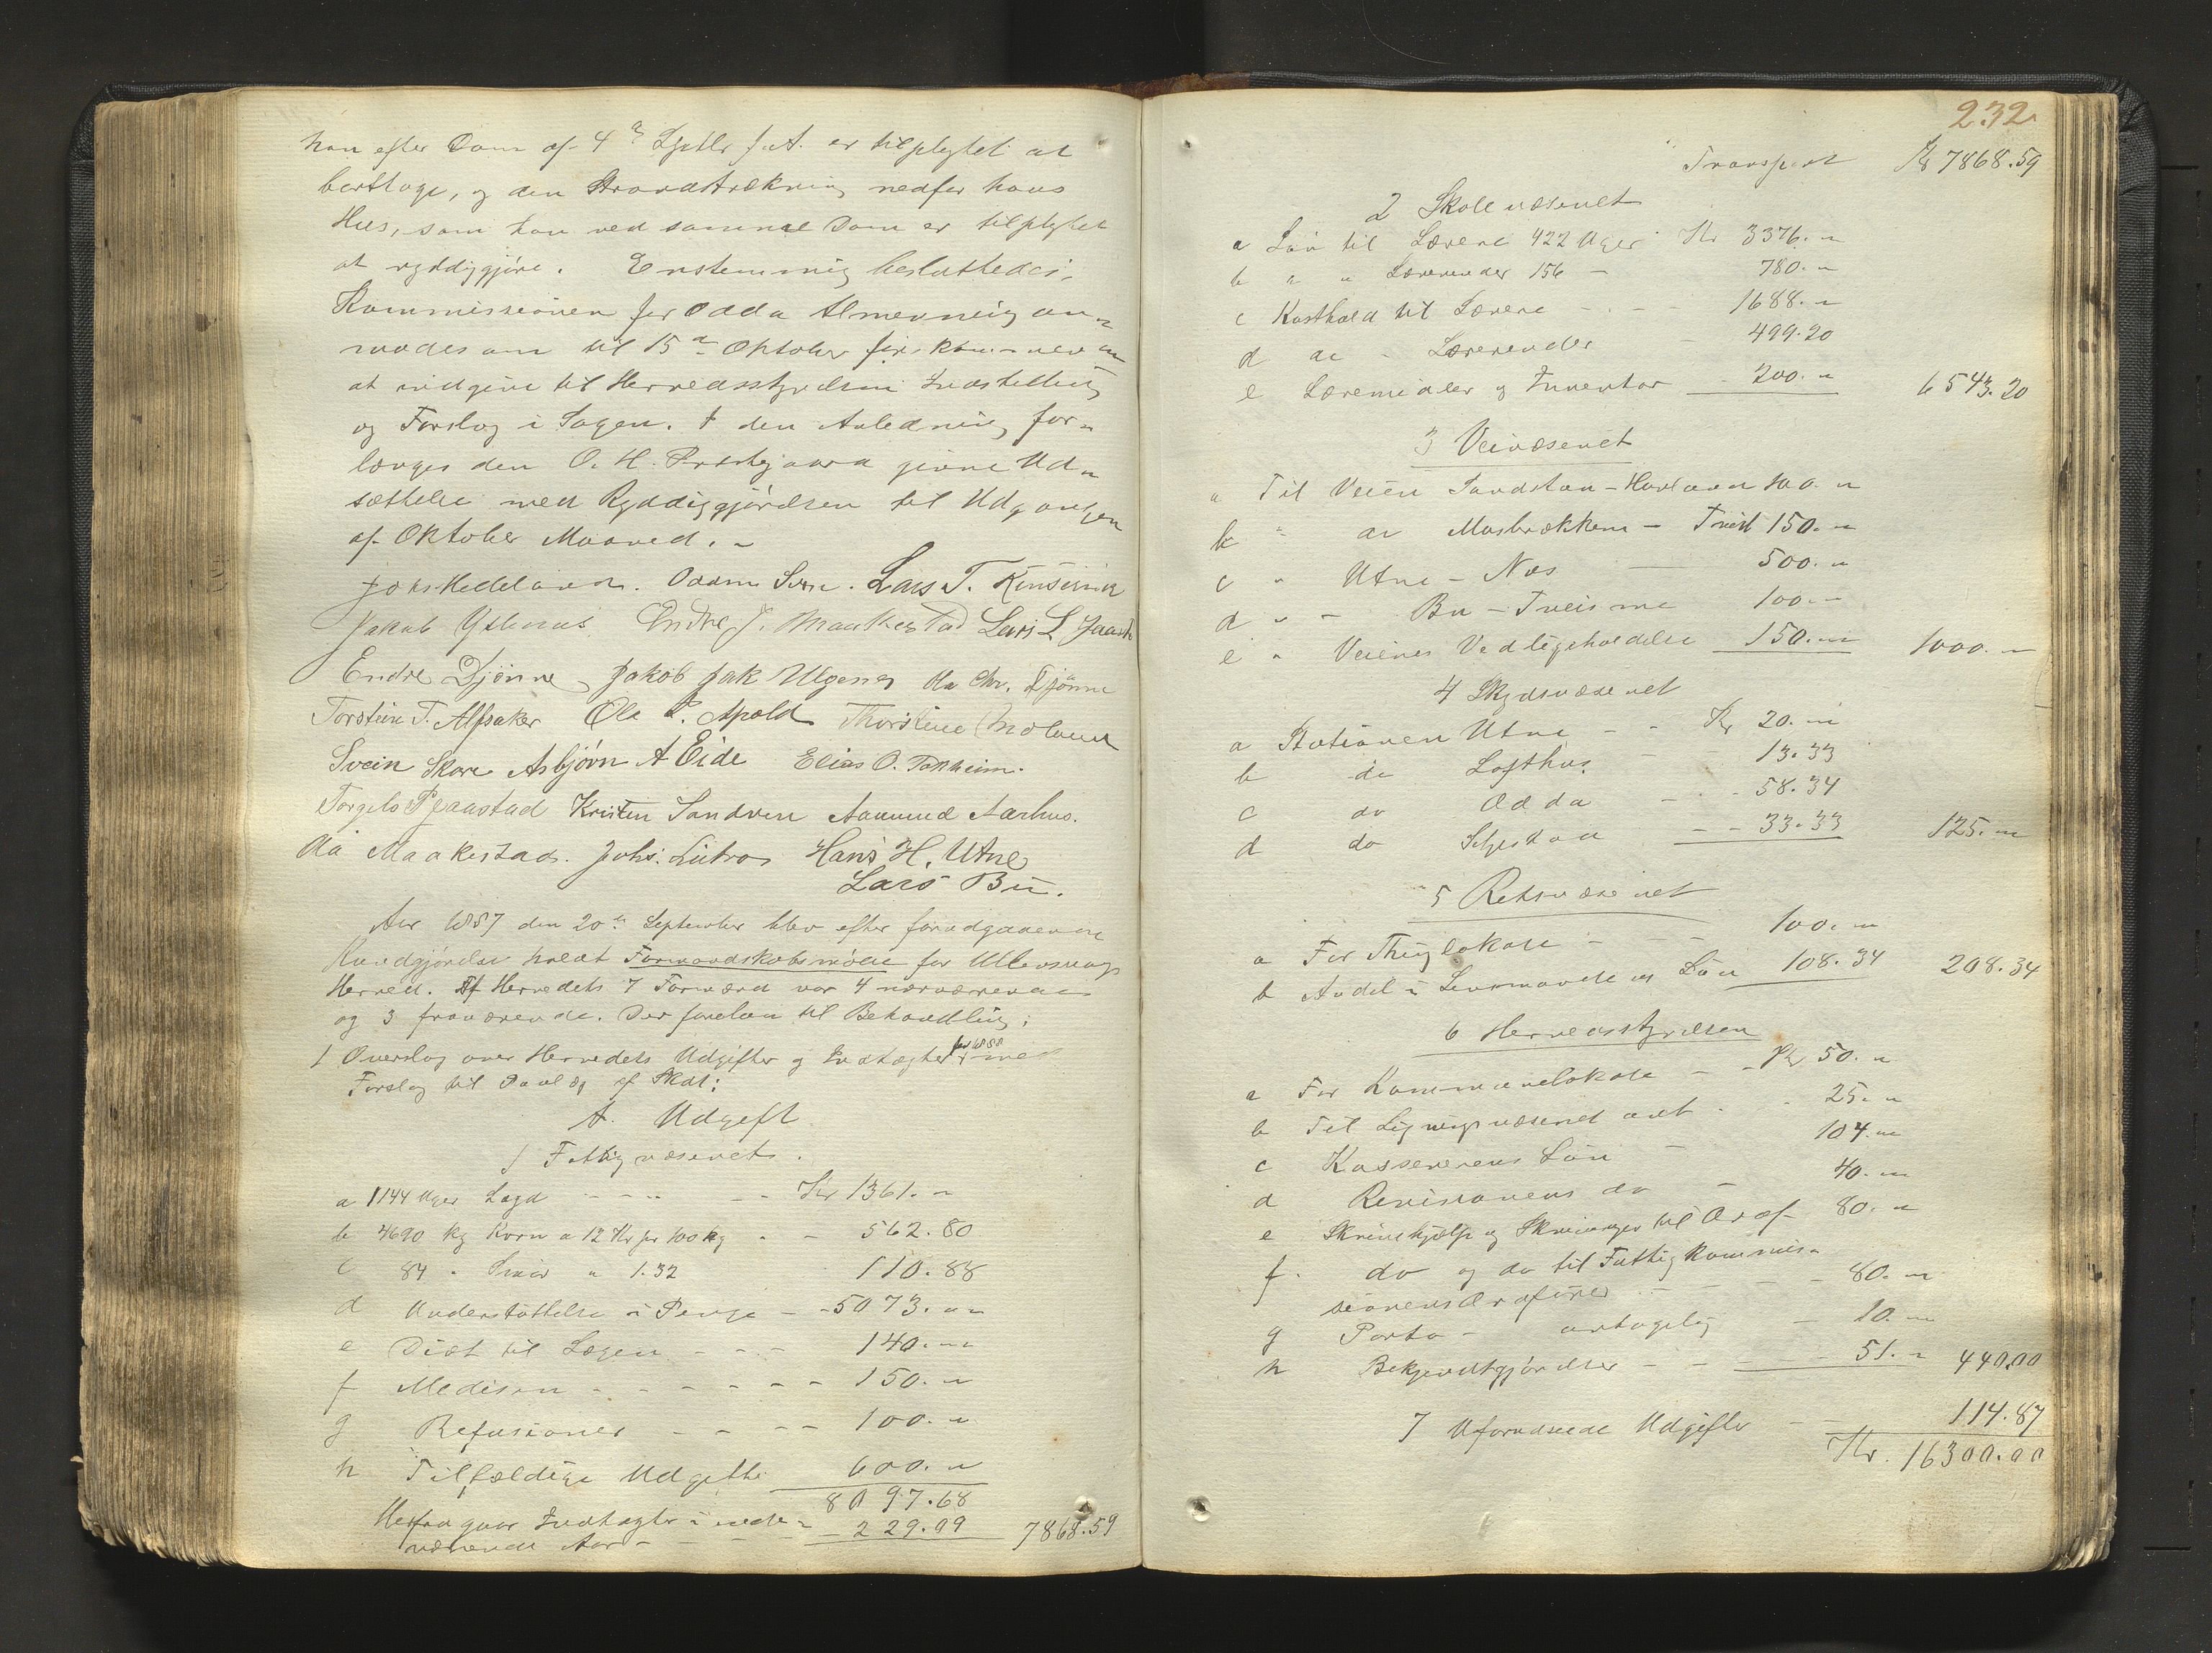 han efter Dom af 4de Septbr f. A. er tilpligtet at
borttage, og den Strandstrækning nedfor hans
Hus, som han ved samme Dom er tilpligtet
at ryddiggjøre. Enstemmig besluttedes:
Kommissionen for Odda Almenning an-
modes om til 15de Oktober førstkommende
at indgive til Herredsstyrelsen Indstilling
og Forslag i Sagen. I den Anledning for-
længes den O. H. Prestegaard givne Ud-
sættelse med Ryddiggjørelsen til Udgangen
af Oktober Maaned. -
Johs Helleland. Oddm Lars T. Kinservik
Jakob Ystanes Endre J. Maakestad Lars L.
Endre Djønne Jakob Jak Ulgenes Ola Chr. Djønne
Torstein T. Alsaker Ola L. Apold Thorstein
Svein Skare Asbjørn A Eide Elias O. Tokheim.
Torgils Kristen Sandven Aamund Aarhus.
Ola Maakestad. Johs. Lutro Hans H. Utne
Lars Bu.
Aar 1887 den 20de September blev efter forudgaaende
Kundgjørelse holdt Formandskabsmøde for Ullensvangs
Herred. Af Herredets 7 Formænd var 4 nærværende
og 3 fraværende. Der forelaa til Behandling:
1 Overslag over Herredets Udgifter og Indtægter for 1888 med
Forslag til Paalæg af Skat:
A. Udgift
1 Fattigvæsenet.
a 1144 Uger Lægd - - - Kr 1361. "
b 4690 kg Korn a 12 Kr pr 100 kg - - 562.80
c 84 " Smør a 1.32 110.88
d Understøttelse i Penge - - 5073. "
e Diæt til Lægen - - - 140. "
f Medisin - - - - - - 150. "
g Refusioner - - - - 100. "
h Tilfældige Udgifter 600. "
8097.68
Herfra gaar Indtægter i inde-
værende Aar - - - 229.09 7868.59
232
Transport Kr 7868.59
2 Skolevæsenet
a Løn til Lærere 422 Uger Kr 3376. "
b " " Lærerinder 156 - 780. "
c Kosthold til Lærere - - - 1688. "
d do - Lærerinder - 499.20
e Læremidler og Inventar - 200. " 6543.20
3 Veivæsenet
a Til Veien Sandstøen - 100. "
b " do - 150. "
c " Utne - Næs - 500. "
d " - Bu - Tveisme 100. "
e " Veienes Vedligeholdelse 150. " 1000. "
4 Skydsvæsenet
a Stationen Utne - - Kr 20. "
b do Lofthus - 13.33
c do Odda - - - 58.34
d do - - 33.33 125. "
5 Retsvæsenet
a For Thinglokale - - - 100. "
b Andel i Lensmandens Løn 108.34 208.34
6 Herredsstyrelsen
a For Kommunelokale - - Kr 50. "
b Til Ligningsvæsenet ant - - 25. "
c Kassererens Løn - 104. "
d Revisionens do - 40. "
e Skrivehjælp og Skrivesager til Ordf 80. "
f do og do til Fattigkommis-
sionens Ordfører - - - 80. "
g Porto - antagelig - 10. "
h Bekjendtgjørelser - - - 51. " 440.00
7 Uforudseede Udgifter - - 114.87
Kr. 16300.00